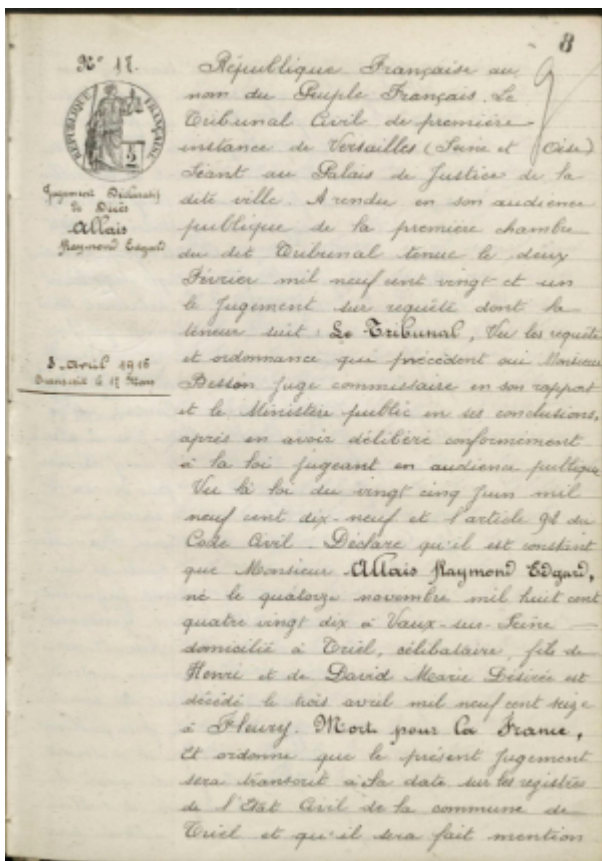 8
N° 17.
RÉPUBLIQUE FRANÇAISE
2
Jugement Déclaratif
de Décès
Allais
Raymond Edgard
3 Avril 1916
Transcrit le 17 Mars
République Française au
nom du Peuple Français. Le
Tribunal Civil de première
instance de Versailles (Seine et Oise)
Séant au Palais de Justice de la
dite ville. A rendu en son audience
publique de la première chambre
du dit Tribunal tenue le deux
Février mil neuf cent vingt et un
le Jugement sur requête dont la
teneur suit : Le Tribunal, Vu les requête
et ordonnance qui précèdent oui Monsieur
Besson Juge commissaire en son rapport
et le Ministère public en ses conclusions,
après en avoir délibéré conformément
à la loi jugeant en audience publique
Vu la loi du vingt cinq Juin mil
neuf cent dix-neuf et l'article 92 du
Code Civil. Déclare qu'il est constant
que Monsieur Allais Raymond Edgard,
né le quatorze novembre mil huit cent
quatre vingt dix à Vaux-sur-Seine
domicilié à Triel, célibataire, fils de
Henri et de David Marie Désirée est
décédé le trois avril mil neuf cent seize
à Fleury. Mort pour la France,
Et ordonne que le présent Jugement
sera transcrit à sa date sur les registres
de l'Etat Civil de la commune de
Triel et qu'il sera fait mention